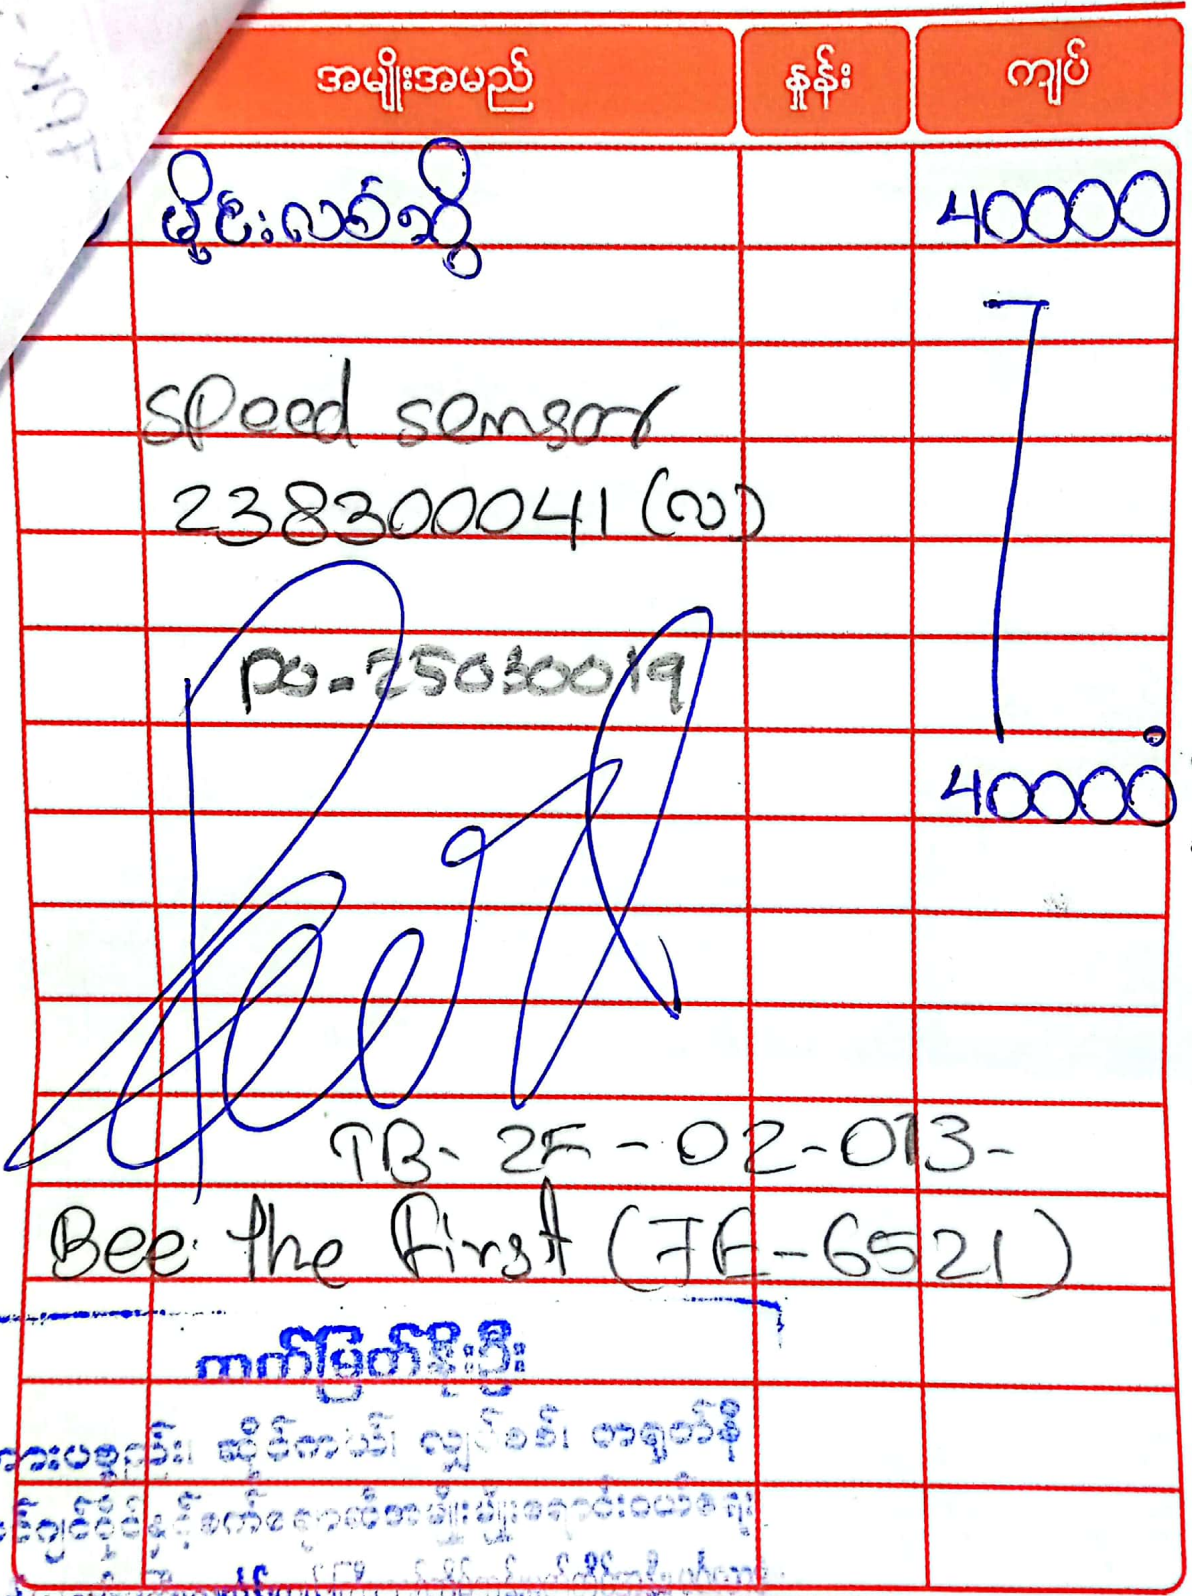 အမျိုးအမည် နှုန်း ကျပ်
မိုင်းလစ်ဆွို 40000
speed sensor
238300041 (လ)
PO-25030019
40000
TB-25-02-013-
Bee the First (7E-6521)
ကက်မြတ်နိုးဦး
ကားပစ္စည်း၊ ဆိုင်ကယ်၊ လျှပ်စစ်၊ တရုတ်နီ